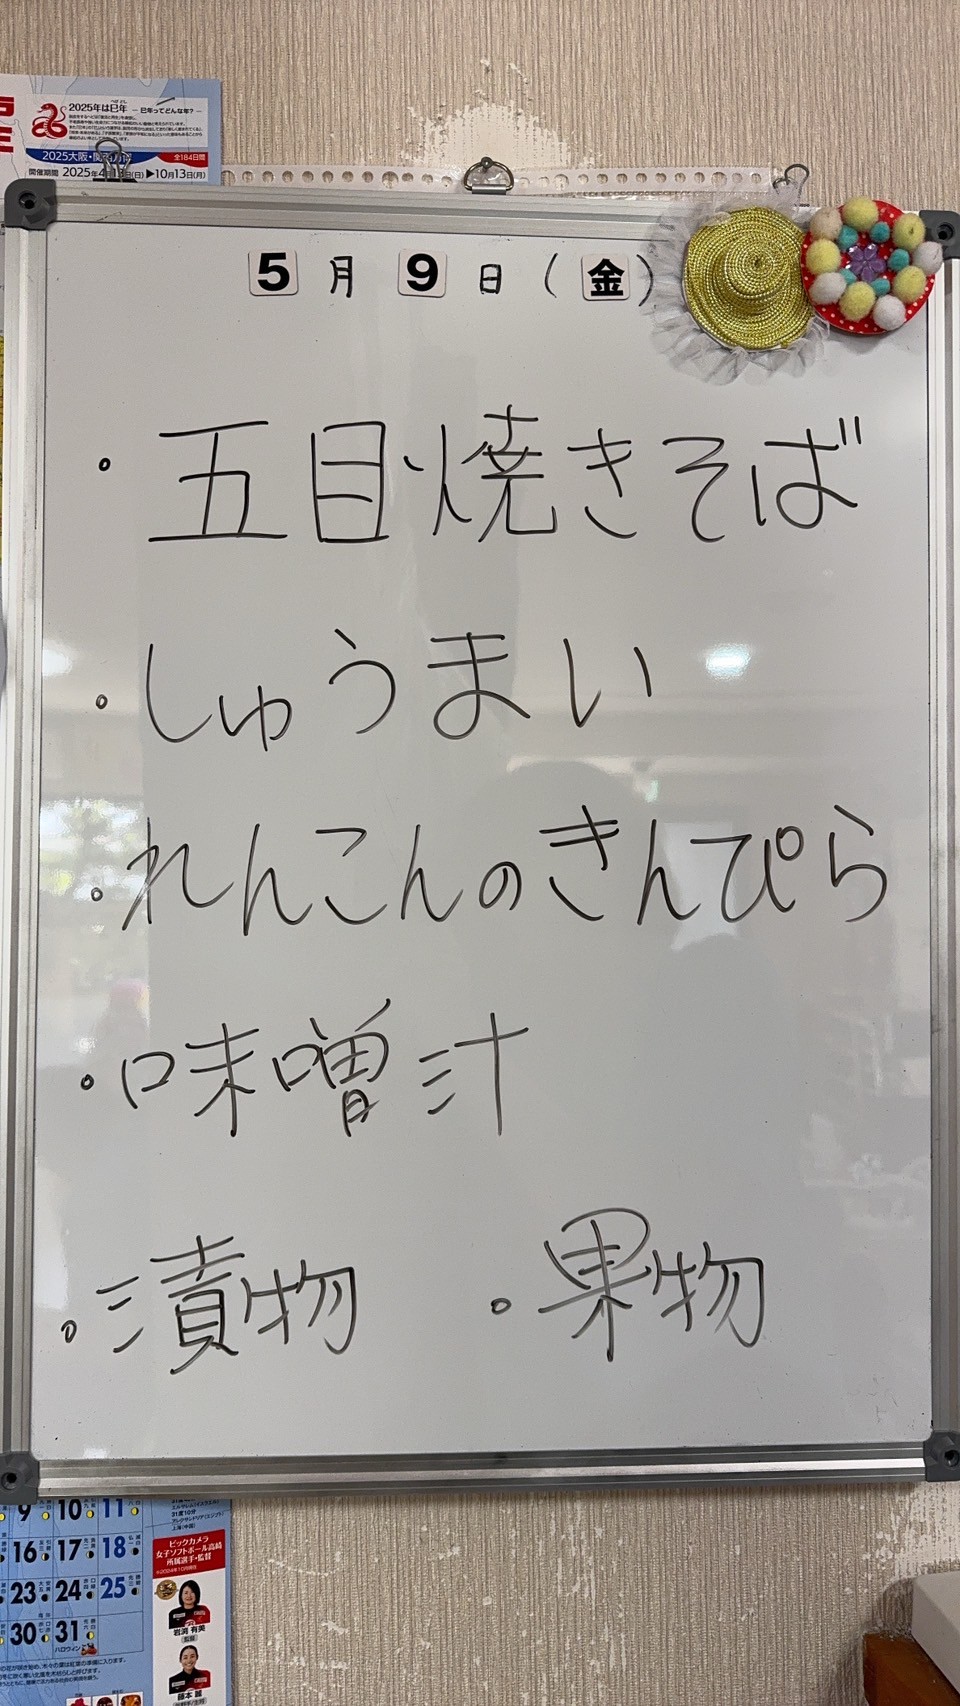 2025年は巳年 ― 巳年ってどんな年? ―
2025大阪・関
全184日間
開催期間 2025年4月13日(日)▶10月13日(月)
5月9日(金)
・五目焼きそば
・しゅうまい
・れんこんのきんぴら
・味噌汁
・漬物 ・果物
9 10 11
16 17 18
23 24 25
30 31
ハロウィン
31度10分
上海(中国)
ビックカメラ
女子ソフトボール高崎
所属選手・監督
岩渕 有美
監督
藤本 麗